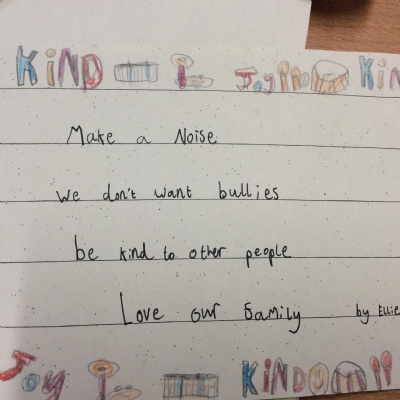 KIND Joy KIN
Make a Noise
We don't want bullies
be kind to other people
Love our family by Ellie
Joy KIND